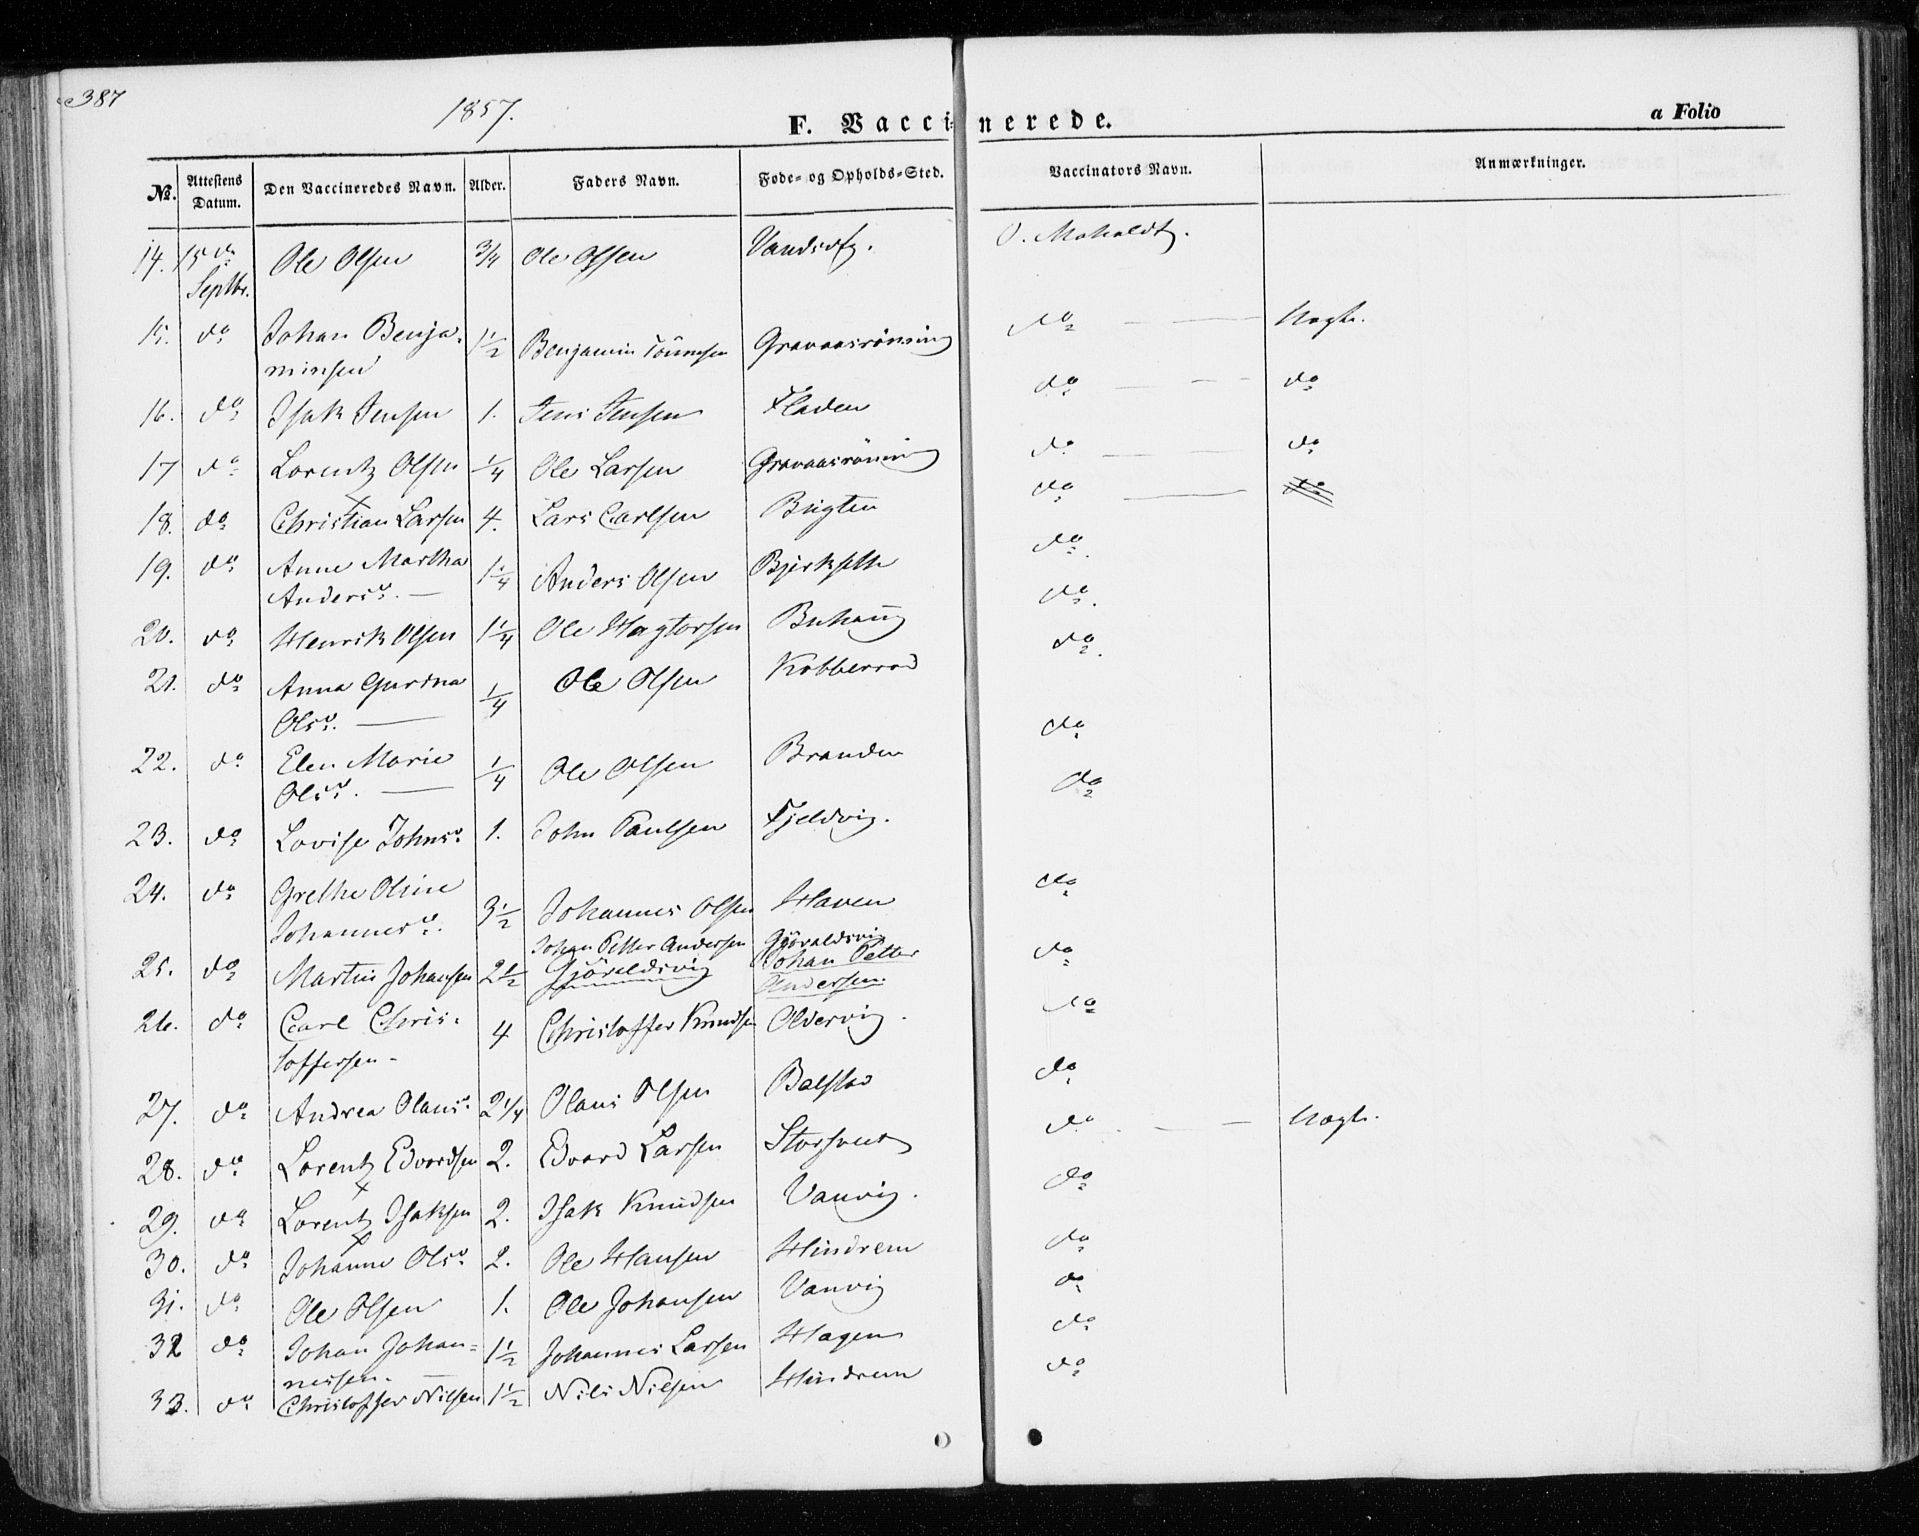 387
1857.
F. Vaccinerede.
a Folio
No. Attestens Datum. Den Vaccineredes Navn. Alder. Faders Navn. Føde- og Opholds-Sted. Vaccinators Navn. Anmærkninger.
14. 15de Septbr. Ole Olsen 3/4 Ole Olsen O. Moholdt.
15. do Johan Benja-
minsen 1 1/2 Benjamin Tönnesen Gravaasrönning do
16. do Isak Jensen 1. Jens Jensen Fladen do do
17 do Lorentz Olsen 1/4 Ole Larsen Gravaasröning do do
18. do Christian Larsen 4. Lars Carlsen Brigten do do
19. do Anne Martha
Andersd. 1 1/4 Anders Olsen Bjerksette do.
20. do Henrik Olsen 1 1/4 Ole Hagtorsen Buhaug do.
21. do Anna Gurina
Olsd. 1/4 Ole Olsen Kobberrod do.
22. do Elen Marie
Olsd. 1/4 Ole Olsen Branden do
23. do Lovise Johnsd. 1. John Paulsen Fjeldvig. do
24. do Grethe Olsine
Johannesd. 3 1/2 Johannes Olsen Haven do
Johan Petter Andersen Gjövaldsvig
25. do Martin Johansen 2 1/2 Gjöveldsvig Johan Petter do
Andersen.
26. do Carl Chris-
toffersen 4 Christoffer Knudsen Oldervig. do
27. do Andrea Olausd. 2 1/4 Olaus Olsen Balstad do
28. do Lorentz Edvardsen 2. Edvard Larsen do
29. do Lorentz Isaksen 2. Isak Knudsen Vanvig. do
30. do Johanne Olsd. 2. Ole Hansen Hindrem do
31. do Ole Olsen 1. Ole Johansen Vanvig do
32 do Johan Johan-
nessen. 1 1/2 Johannes Larsen Hagen do
33. do Christoffer Nilsen 1 1/2 Nils Nilsen Hindrem do